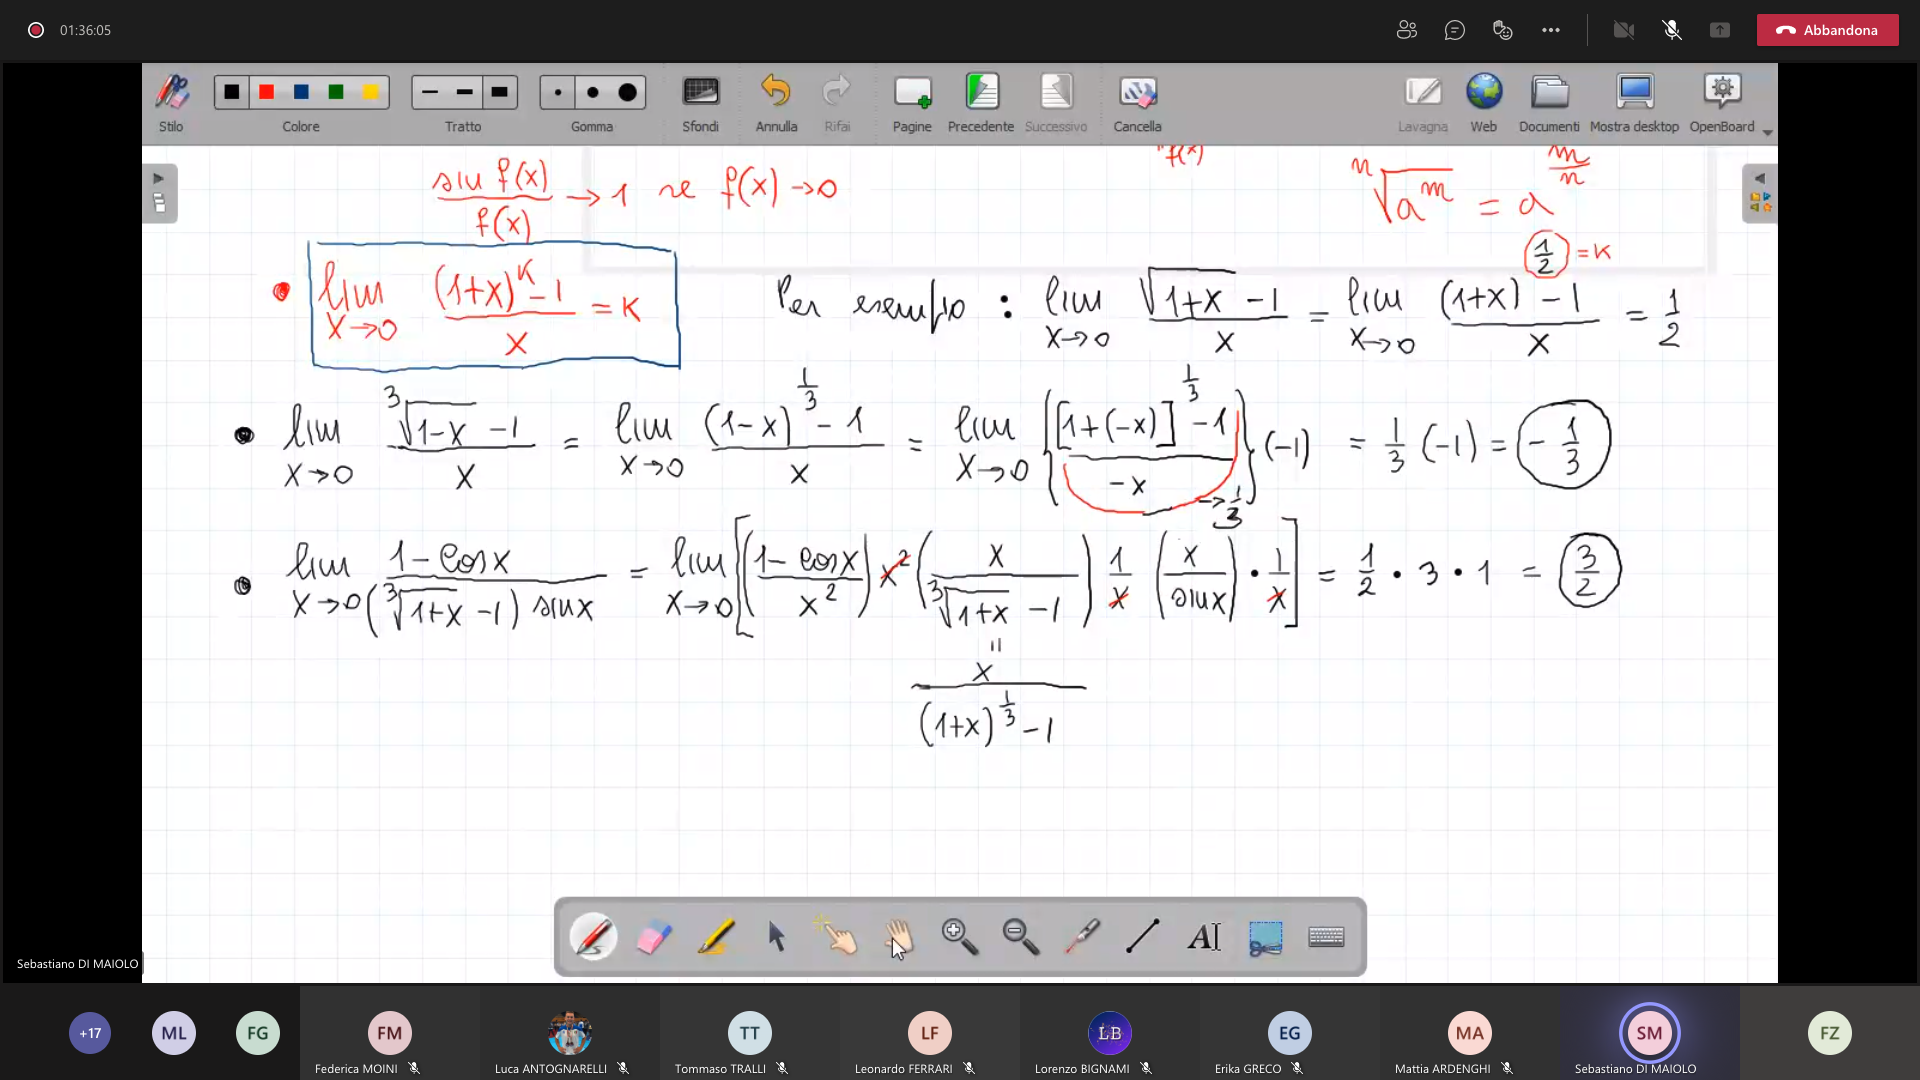 01:36:05
Abbandona
Stilo Colore Tratto Gomma Sfondi Annulla Rifai Pagine Precedente Successivo Cancella Lavagna Web Documenti Mostra desktop OpenBoard
sin f(x) / f(x) → 1 se f(x) → 0
f(x)
ⁿ√(a^m) = a^(m/n)
• lim x→0 ((1+x)^K - 1) / x = K
Per esempio : lim x→0 (√(1+x) - 1) / x = lim x→0 ((1+x)^(1/2) - 1) / x = 1/2
1/2 = K
• lim x→0 (³√(1-x) - 1) / x = lim x→0 ((1-x)^(1/3) - 1) / x = lim x→0 {([1+(-x)]^(1/3) - 1) / -x} (-1) = 1/3 (-1) = - 1/3
→ 1/3
• lim x→0 (1 - cos x) / ((³√(1+x) - 1) sin x) = lim x→0 [((1 - cos x) / x²) x² (x / (³√(1+x) - 1)) 1/x (x / sin x) • 1/x] = 1/2 • 3 • 1 = 3/2
"
x / ((1+x)^(1/3) - 1)
AI
Sebastiano DI MAIOLO
+17 ML FG FM TT LF LB EG MA SM FZ
Federica MOINI Luca ANTOGNARELLI Tommaso TRALLI Leonardo FERRARI Lorenzo BIGNAMI Erika GRECO Mattia ARDENGHI Sebastiano DI MAIOLO